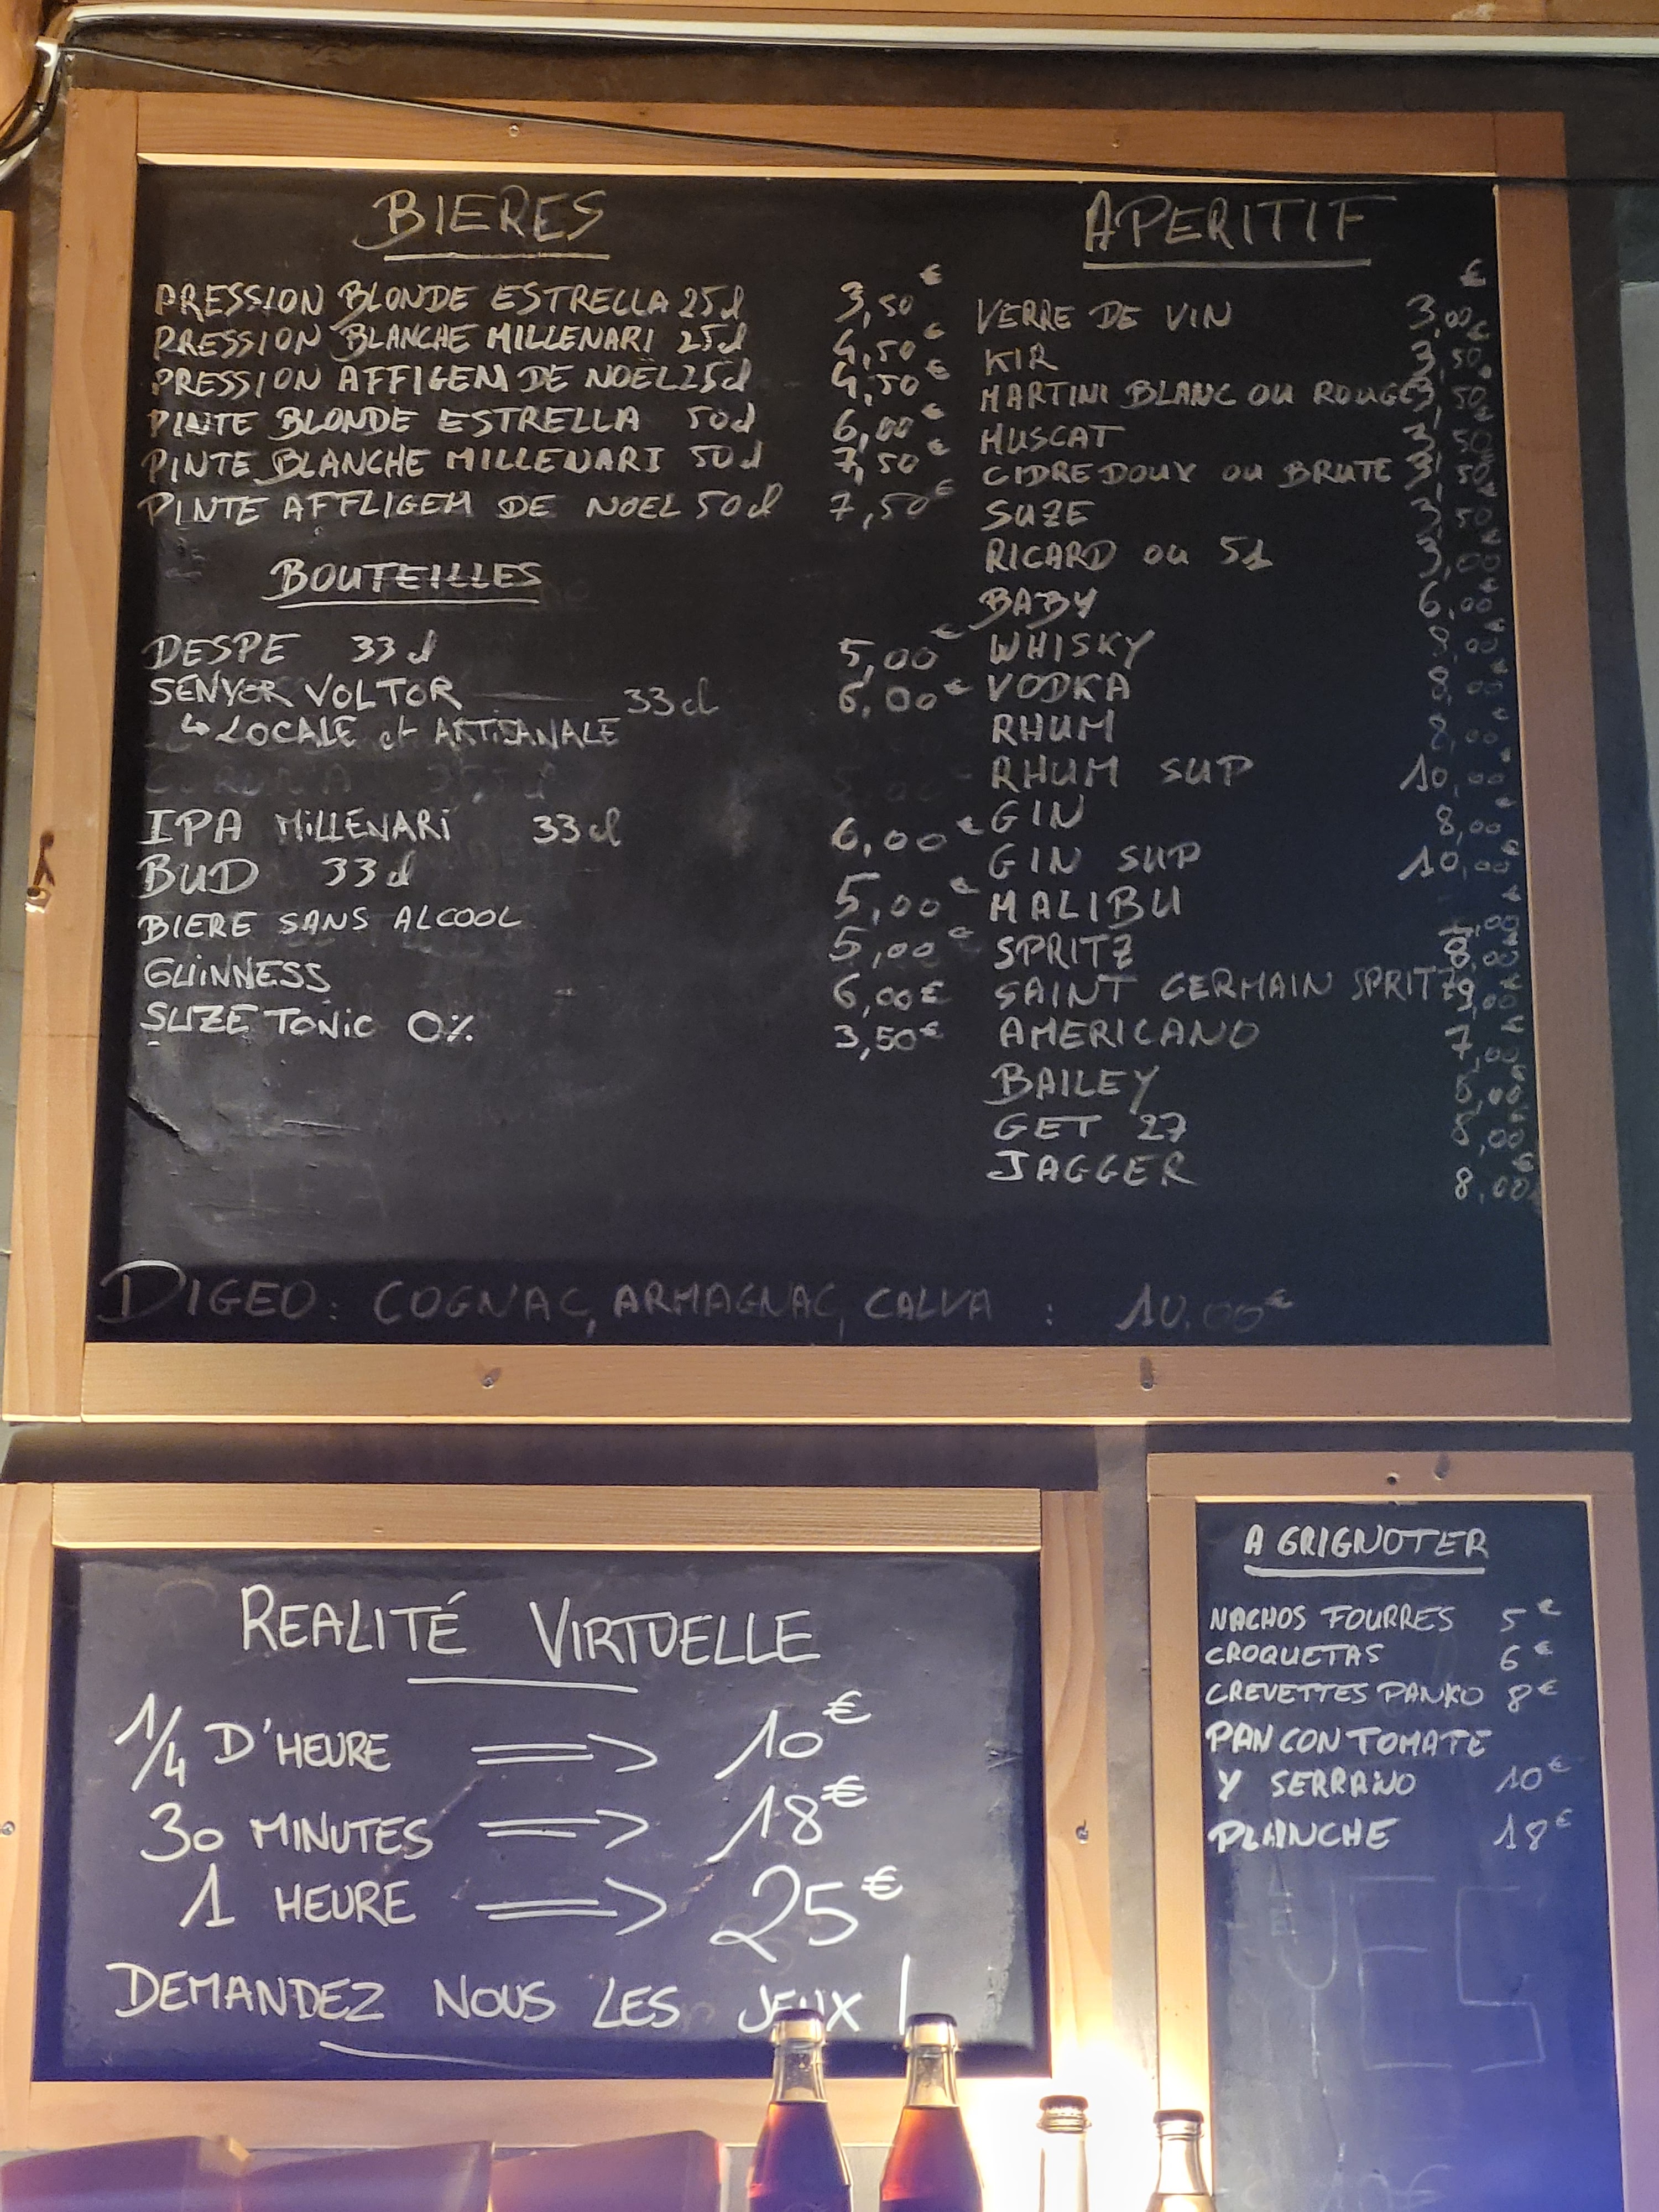 BIERES
PRESSION BLONDE ESTRELLA 25cl 3,50€
PRESSION BLANCHE MILLENARI 25cl 4,50€
PRESSION AFFIGEM DE NOËL 25cl 4,50€
PINTE BLONDE ESTRELLA 50cl 6,00€
PINTE BLANCHE MILLENARI 50cl 7,50€
PINTE AFFLIGEM DE NOEL 50cl 7,50€
BOUTEILLES
DESPE 33cl 5,00€
SENYOR VOLTOR 33cl 6,00€
↳ LOCALE et ARTISANALE
IPA MiLLENARi 33cl 6,00€
BUD 33cl 5,00€
BIERE SANS ALCOOL 5,00€
GUiNNESS 6,00€
SUZE TONIC 0% 3,50€
APERITIF
VERRE DE VIN 3,00€
KIR 3,50€
MARTINI BLANC OU ROUGE 3,50€
MUSCAT 3,50€
CIDRE DOUX OU BRUTE 3,50€
SUZE 3,50€
RICARD OU 51 3,00€
BABY 6,00€
WHISKY 8,00€
VODKA 8,00€
RHUM 8,00€
RHUM SUP 10,00€
GIN 8,00€
GIN SUP 10,00€
MALIBU
SPRITZ 8,00€
SAINT GERMAIN SPRITZ 9,00€
AMERICANO 7,00€
BAILEY
GET 27 8,00€
JAGGER 8,00€
DIGEO : COGNAC, ARMAGNAC, CALVA : 10.00€
REALITÉ VIRTUELLE
1/4 D'HEURE ⟹ 10€
30 MINUTES ⟹ 18€
1 HEURE ⟹ 25€
DEMANDEZ NOUS LES JEUX !
A GRIGNOTER
NACHOS FOURRES 5€
CROQUETAS 6€
CREVETTES PANKO 8€
PAN CON TOMATE
Y SERRANO 10€
PLANCHE 18€